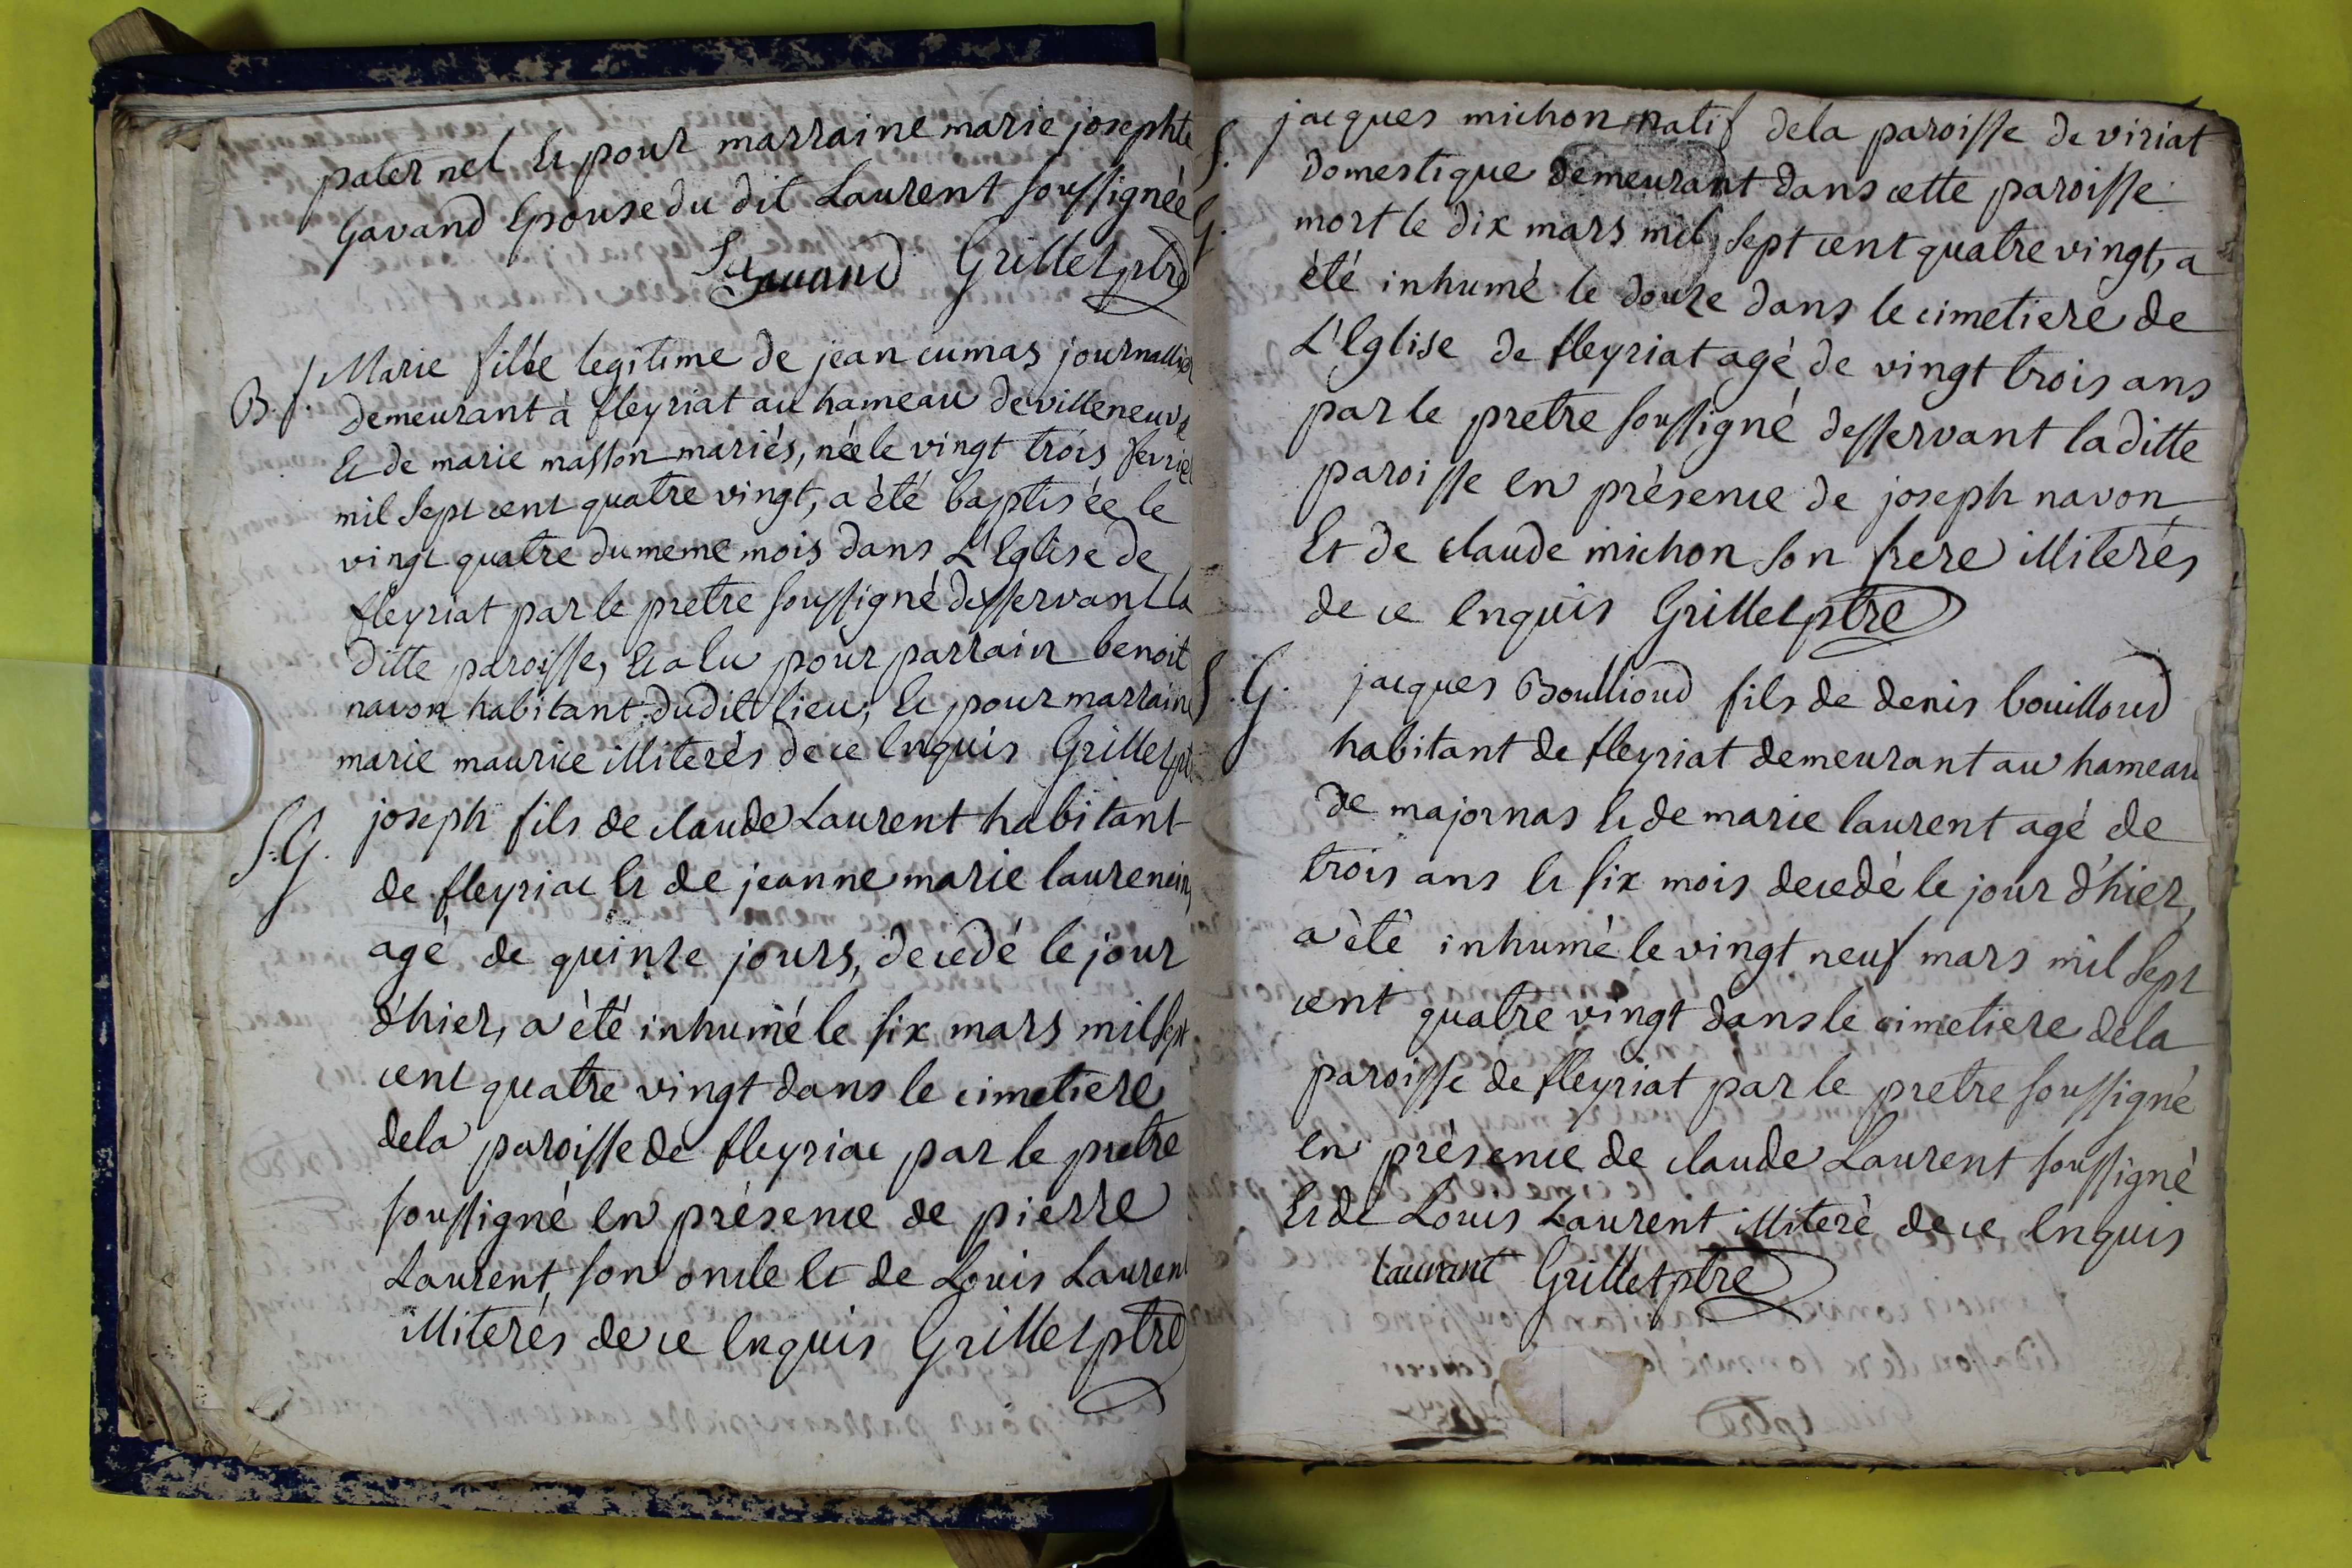 paternel et pour marraine marie josephte
gavand Epouse du dit Laurent soussignée
Gavand Grillet ptre
B. f. Marie fille legitime de jean cumas journallier
demeurant à fleyriat au hameau de villeneuve
et de marie masson mariés, née le vingt trois fevrier
mil sept cent quatre vingt, a été baptisée le
vingt quatre du meme mois dans L'Eglise de
fleyriat par le pretre soussigné desservant la
ditte paroisse, et a eu pour parrain benoit
navon habitant dudit lieu, et pour marraine
marie maurice illiterés de ce Enquis Grillet ptre
S. G. joseph fils de claude Laurent habitant
de fleyriat et de jeanne marie laurencin,
agé de quinze jours, decedé le jour
d'hier, a été inhumé le six mars mil sept
cent quatre vingt dans le cimetiere
dela paroisse de fleyriat par le pretre
soussigné en présence de pierre
Laurent, son oncle et de Louis Laurent
illiterés de ce Enquis Grillet ptre
S. G. jacques michon natif dela paroisse de viriat
domestique demeurant dans cette paroisse
mort le dix mars mil sept cent quatre vingt, a
été inhumé le douze dans le cimetiere de
L'Eglise de fleyriat agé de vingt trois ans
par le pretre soussigné desservant laditte
paroisse en présence de joseph navon
Et de claude michon son frere illiterés
de ce Enquis Grillet ptre
S. G. jacques Boullioud fils de denis bouilloud
habitant de fleyriat demeurant au hameau
de majornas et de marie laurent agé de
trois ans et six mois decedé le jour d'hier,
a été inhumé le vingt neuf mars mil sept
cent quatre vingt dans le cimetiere dela
paroisse de fleyriat par le pretre soussigné
en présence de claude Laurent soussigné
et de Louis Laurent illiteré de ce Enquis
laurant Grillet ptre